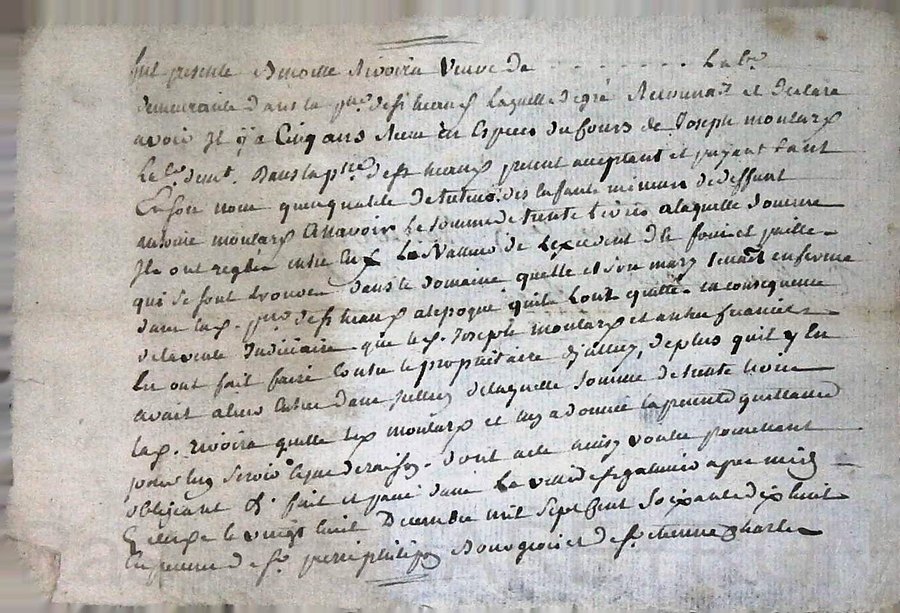 fut presente Benoite Rivoira veuve de . . . . . . . Lab.r
demeurante dans la p.sse de st heand laquelle de gré Reconnait et declare
avoir Il y a Cinq ans Receu en Especes du Cours de Joseph moulard
Le l.r dem.t dans la p.sse de st heand present acceptant et payant tant
En son nom qu'en qualité de tuteur des Enfants mineurs de deffunt
antoine moulard assavoir la somme de trente Livres a laquelle somme
Ils ont reglé entre Eux La Valleur de L'excedent de foin et paille
qui se sont trouvés dans le domaine quelle et son mary tenait en ferme
dans lad. p.sse de st heand a l'epoque quils l'ont quitté en consequence
de la vente Judiciaire que led. Joseph moulard et
En ont fait faire Contre le proprietaire d'Julien, de plus quil y En
avait a leur Entrée dans de laquelle somme de trente livres
lad. rivoira quitte led. moulard et luy a donné la presente quittance
pour luy servir Ce que de raison. dont acte ainsy voulu promettant
obligeant &c. fait et passé dans La ville de st galmier apres midy
Et le vingt huit Decembre mil sept Cent soixante dix huit
En presence de sr pierre philipon Bourgeois et de sr etienne Charles